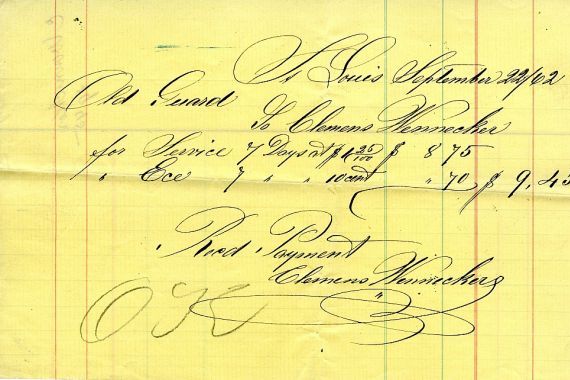 St Louis September 22/02
Old Guard
To Clemens Wennecker
for Service 7 Days at $ 1 25/100 $ 8 75
" Ece 7 " " 10 cent " 70 $ 9,45
Recd Payment
Clemens Wennecker
OK